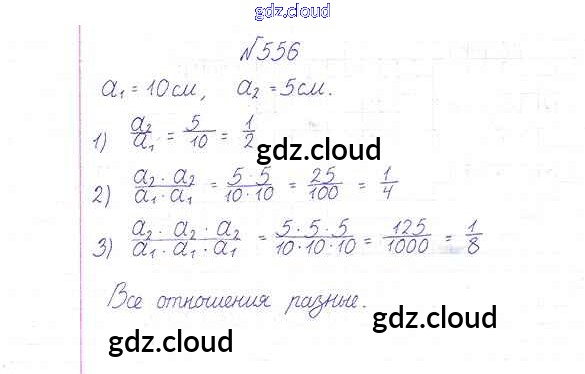 gdz.cloud
№556
a₁ = 10см, a₂ = 5см.
1) a₂/a₁ = 5/10 = 1/2
gdz.cloud
2) a₂ · a₂/a₁ · a₁ = 5 · 5/10 · 10 = 25/100 = 1/4
3) a₂ · a₂ · a₂/a₁ · a₁ · a₁ = 5 · 5 · 5/10 · 10 · 10 = 125/1000 = 1/8
Все отношения разные.
gdz.cloud
gdz.cloud